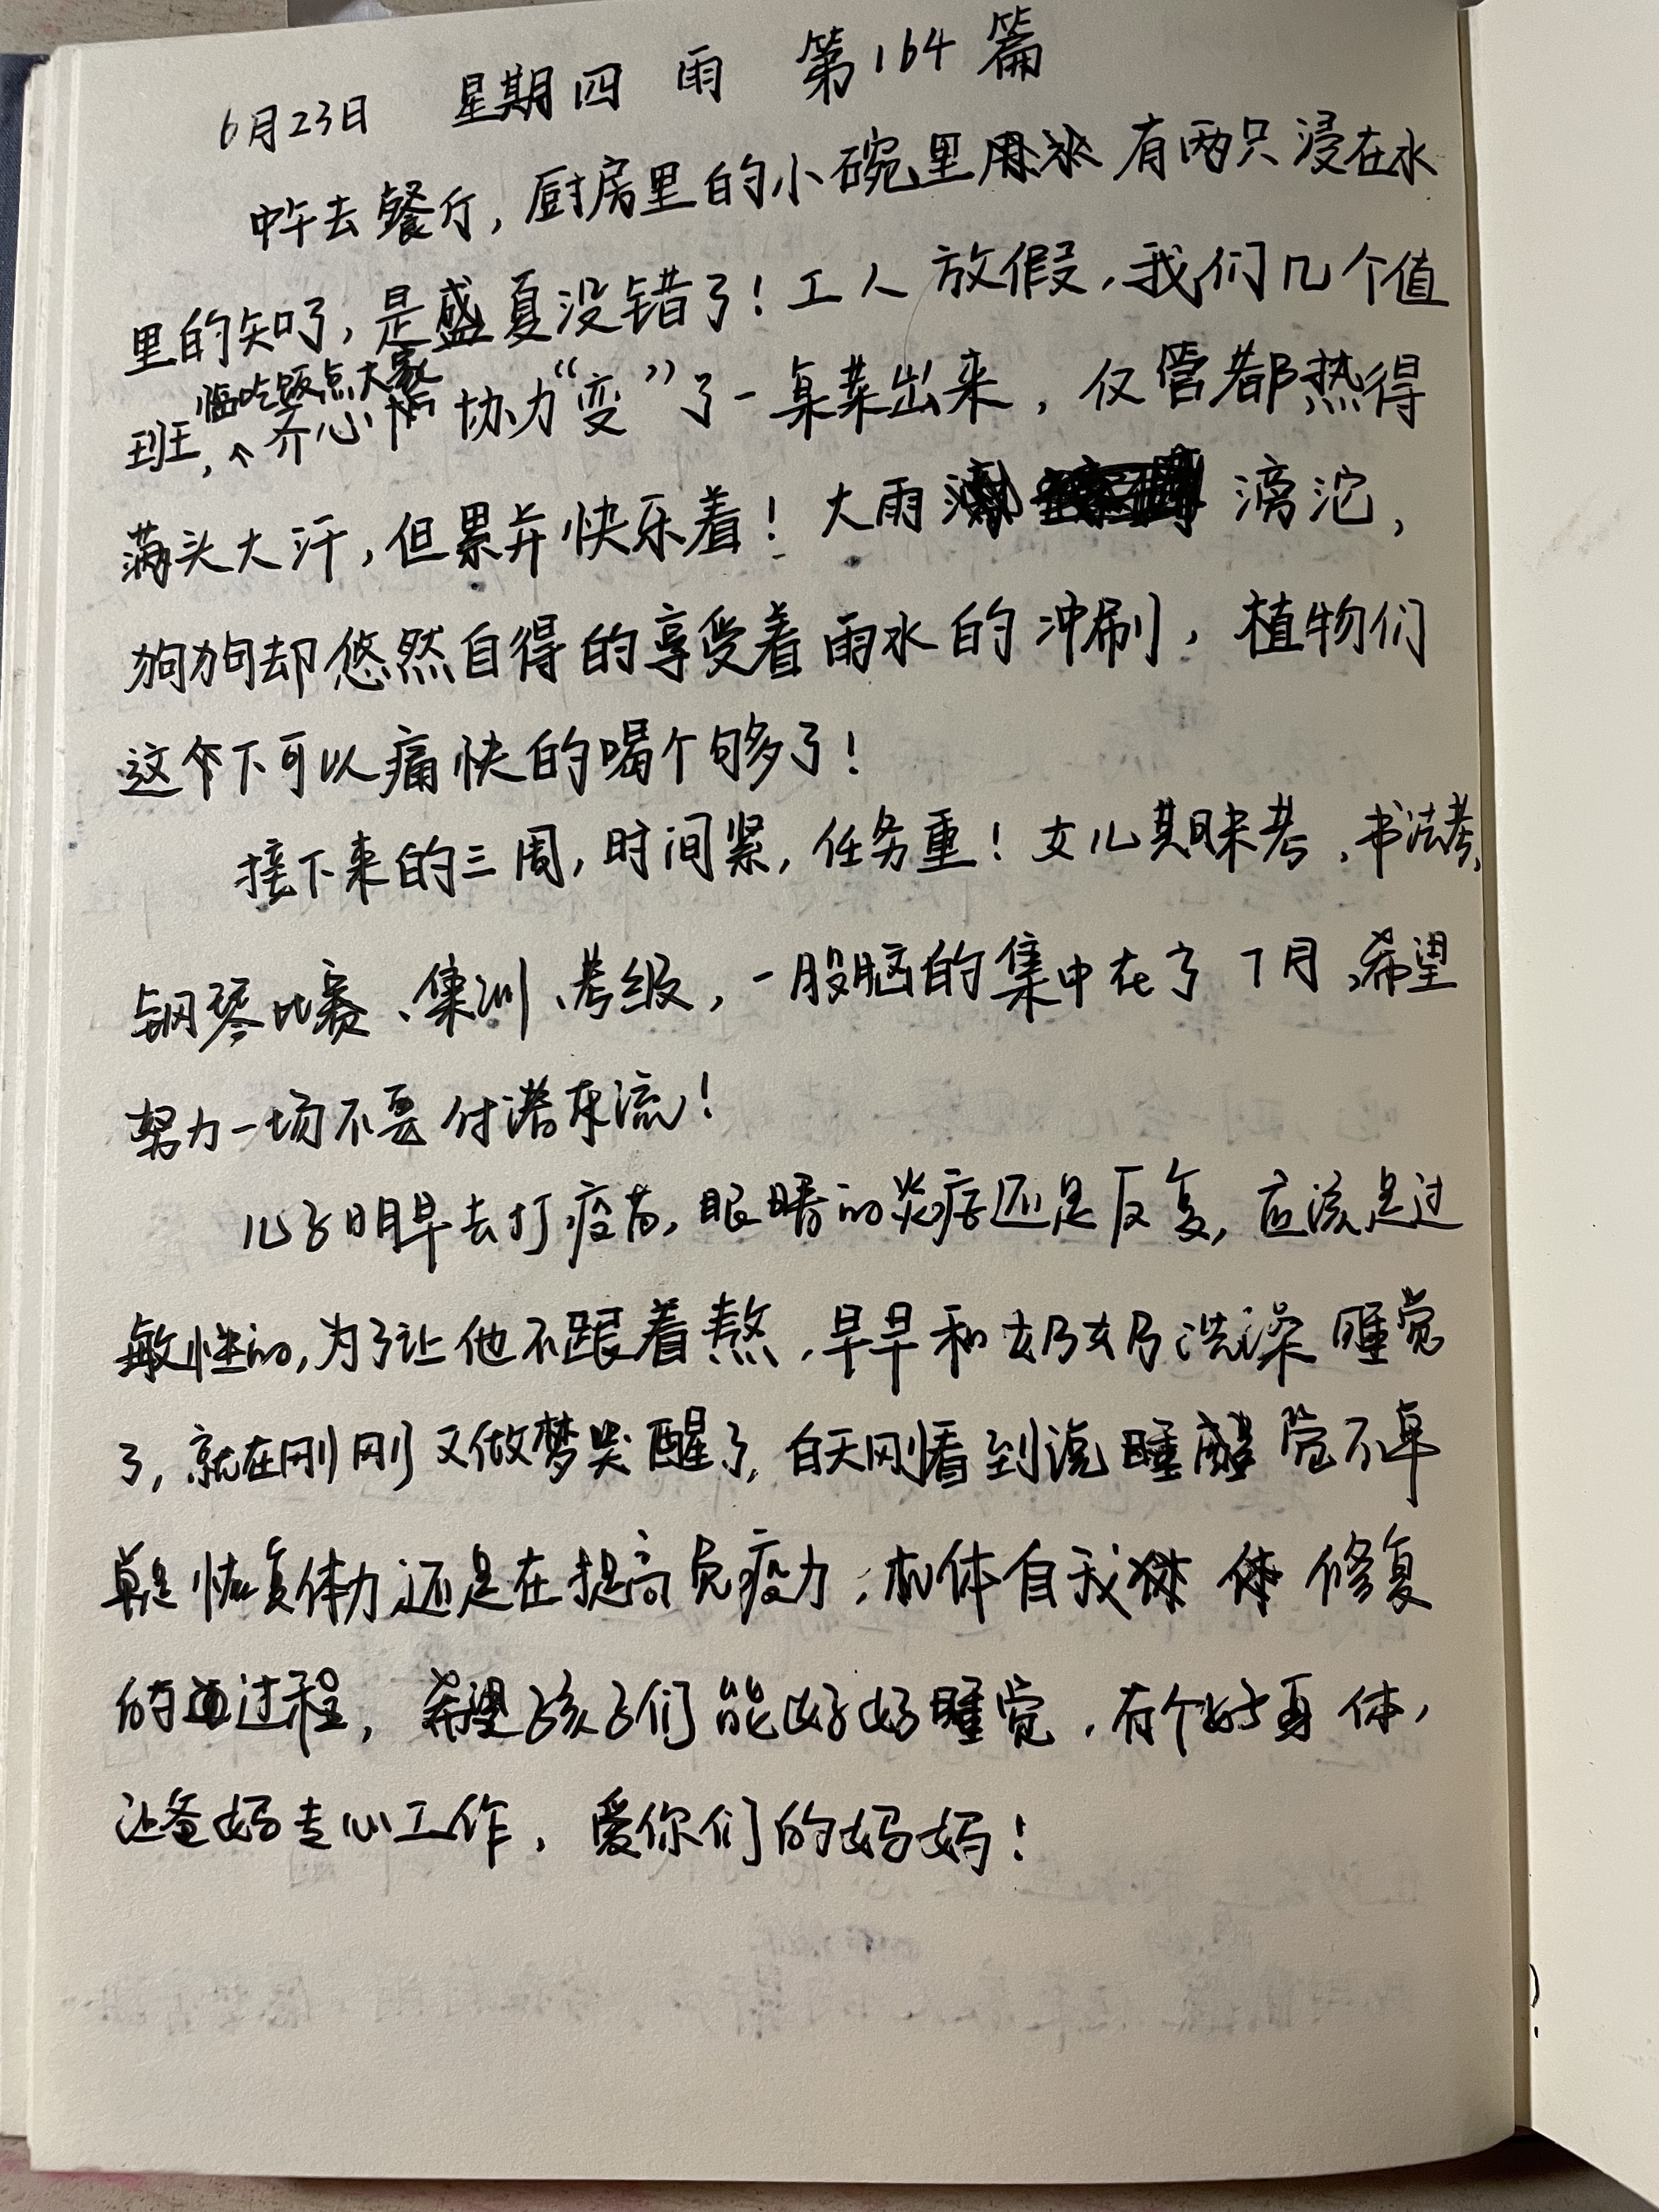 6月23日 星期四 雨 第164篇
中午去餐厅，厨房里的小碗里用冰有两只浸在水
里的知了，是盛夏没错了！工人放假，我们几个值
临吃饭点大家
班，齐心协力“变”了一桌菜出来，仅管都热得
满头大汗，但累并快乐着！大雨滂沱，
狗狗却悠然自得的享受着雨水的冲刷，植物们
这个下可以痛快的喝个够了！
接下来的三周，时间紧，任务重！女儿期末考、书法考、
钢琴比赛、集训、考级，一股脑的集中在了7月，希望
努力一场不要付诸东流！
儿子明早去打疫苗，眼睛的炎症还是反复，应该是过
敏性的，为了让他不跟着熬，早早和奶奶洗澡睡觉
了，就在刚刚又做梦哭醒了，白天刚看到说睡醒觉不单
单是恢复体力还是在提高免疫力，机体自我体修复
的过程，希望孩子们能好好睡觉，有个好身体，
让爸妈专心工作，爱你们的妈妈！